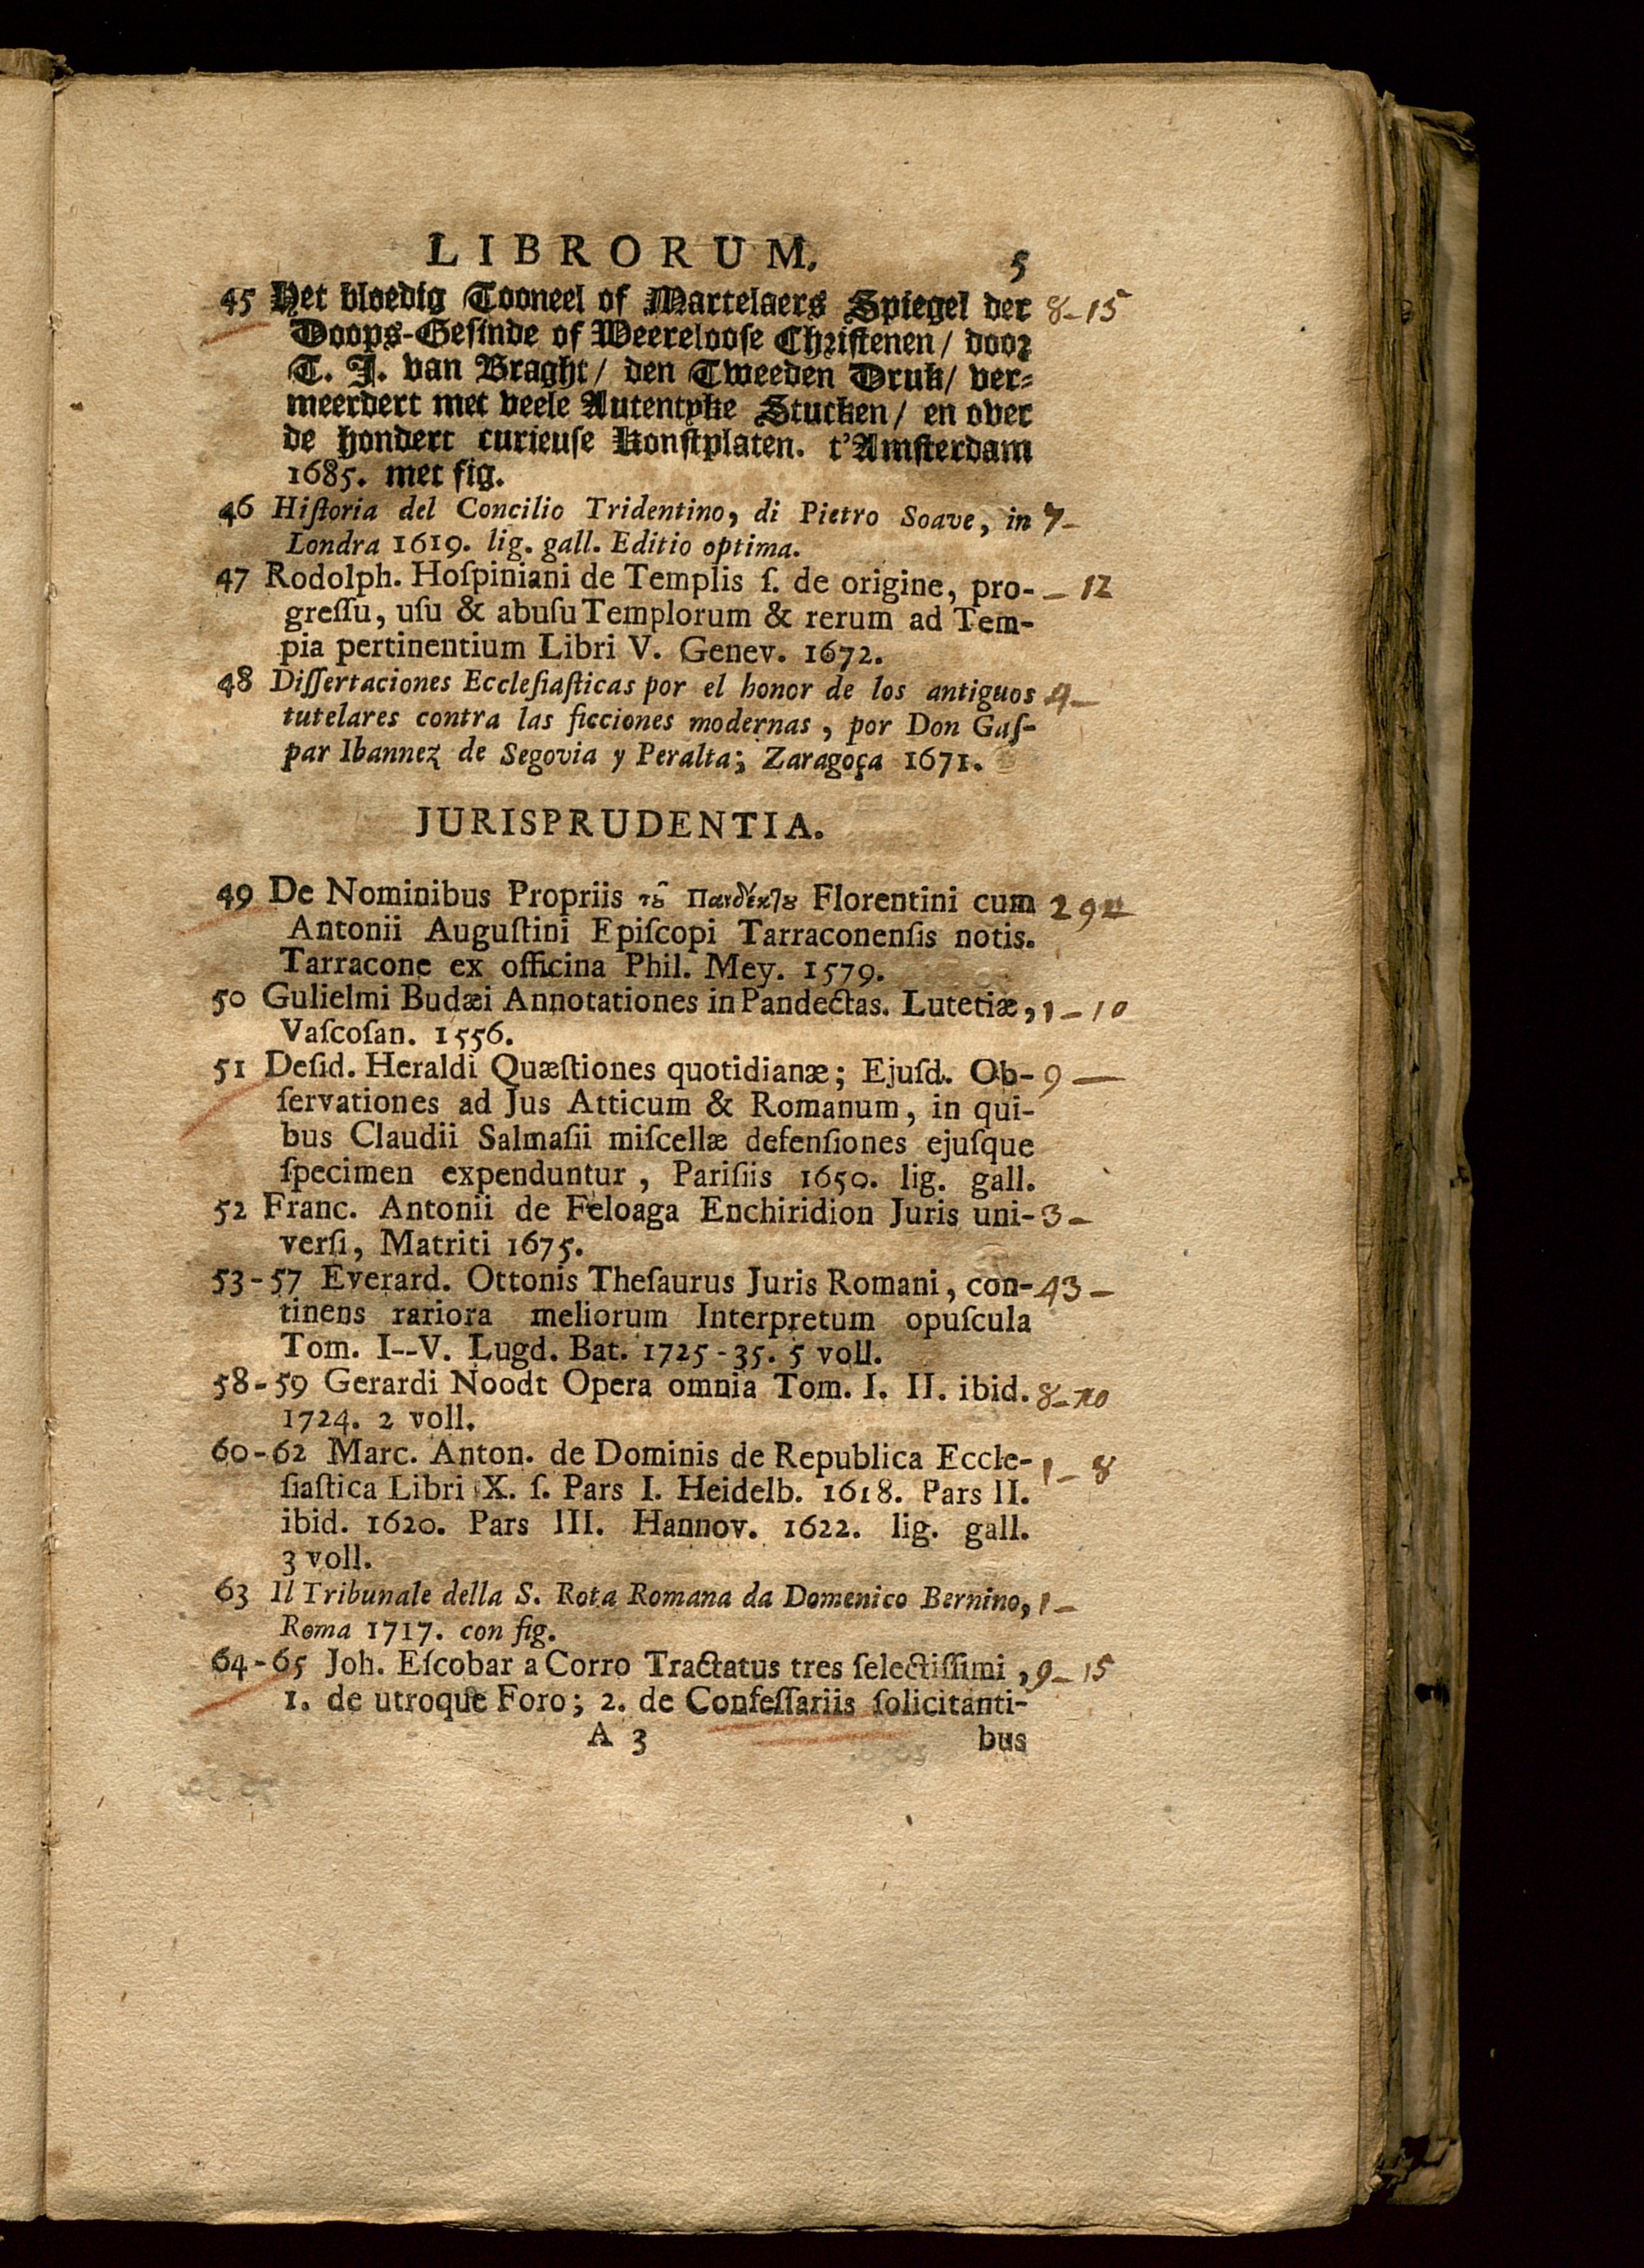 LIBRORUM. 5
45 Het bloedig Tooneel of Martelaers Spiegel der 8-15
Doops-Gesinde of Weereloose Christenen / door
T. J. van Braght / den Tweeden Druk / ver-
meerdert met veele Autentyke Stucken / en over
de hondert curieuse Konstplaten. t'Amsterdam
1685. met fig.
46 Hiſtoria del Concilio Tridentino, di Pietro Soave, in 7-
Londra 1619. lig. gall. Editio optima.
47 Rodolph. Hoſpiniani de Templis ſ. de origine, pro- - 12
greſſu, uſu & abuſu Templorum & rerum ad Tem-
pia pertinentium Libri V. Genev. 1672.
48 Diſſertaciones Eccleſiaſticas por el honor de los antiguos 4-
tutelares contra las ficciones modernas, por Don Gaſ-
par Ibannez de Segovia y Peralta; Zaragoça 1671.
JURISPRUDENTIA.
49 De Nominibus Propriis τȣ͂ Πανδέκτȣ Florentini cum 29
Antonii Auguſtini Epiſcopi Tarraconenſis notis.
Tarracone ex officina Phil. Mey. 1579.
50 Gulielmi Budæi Annotationes in Pandectas. Lutetiæ, 1-10
Vaſcoſan. 1556.
51 Deſid. Heraldi Quæſtiones quotidianæ; Ejuſd. Ob- 9 -
ſervationes ad Jus Atticum & Romanum, in qui-
bus Claudii Salmaſii miſcellæ defenſiones ejuſque
ſpecimen expenduntur, Pariſiis 1650. lig. gall.
52 Franc. Antonii de Feloaga Enchiridion Juris uni- 3-
verſi, Matriti 1675.
53-57 Everard. Ottonis Theſaurus Juris Romani, con- 43-
tinens rariora meliorum Interpretum opuſcula
Tom. I--V. Lugd. Bat. 1725-35. 5 voll.
58-59 Gerardi Noodt Opera omnia Tom. I. II. ibid. 8-10
1724. 2 voll.
60-62 Marc. Anton. de Dominis de Republica Eccle- 1-8
ſiaſtica Libri X. ſ. Pars I. Heidelb. 1618. Pars II.
ibid. 1620. Pars III. Hannov. 1622. lig. gall.
3 voll.
63 Il Tribunale della S. Rota Romana da Domenico Bernino, 1-
Roma 1717. con fig.
64-65 Joh. Eſcobar a Corro Tractatus tres ſelectiſſimi, 9-15
1. de utroque Foro; 2. de Confeſſariis ſolicitanti-
A 3 bus